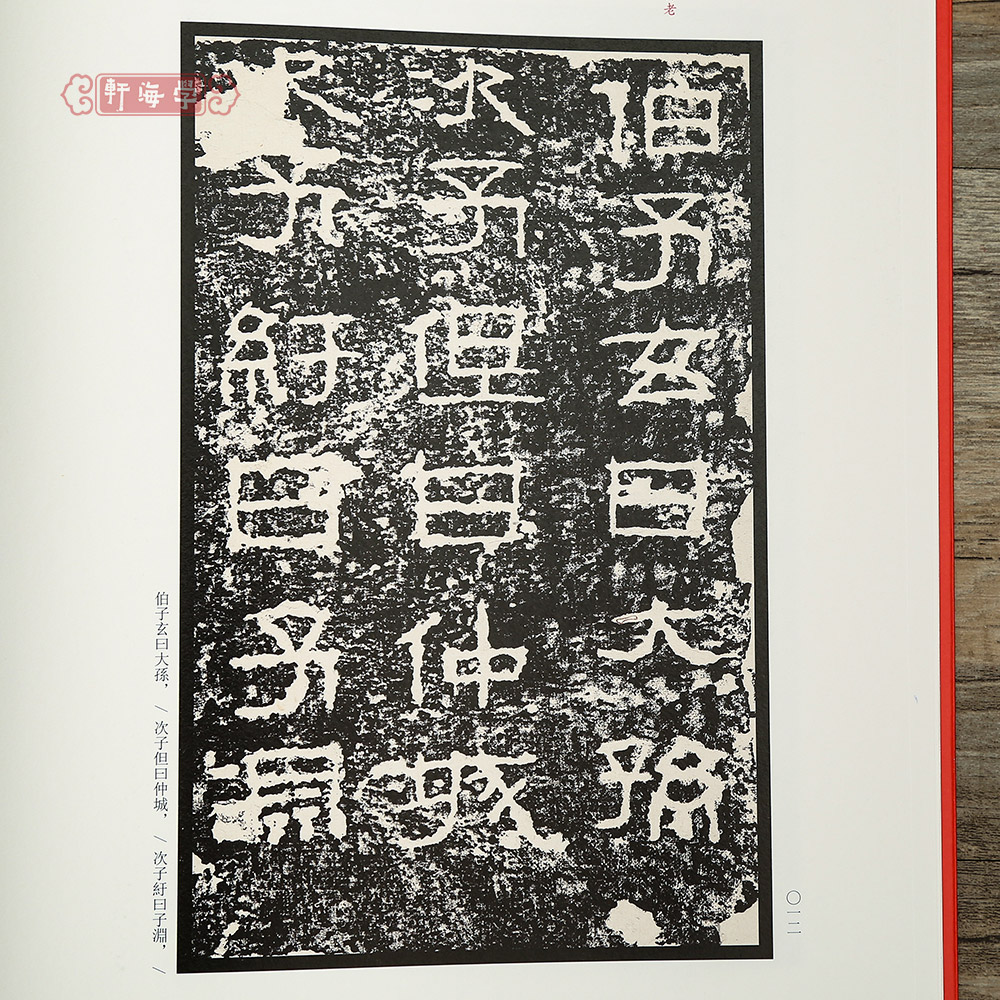 老
伯子玄曰大孫
次子但曰仲城
次子紆曰子淵
伯子玄曰大孫，／次子但曰仲城，／次子紆曰子淵，／
〇一二
軒海学